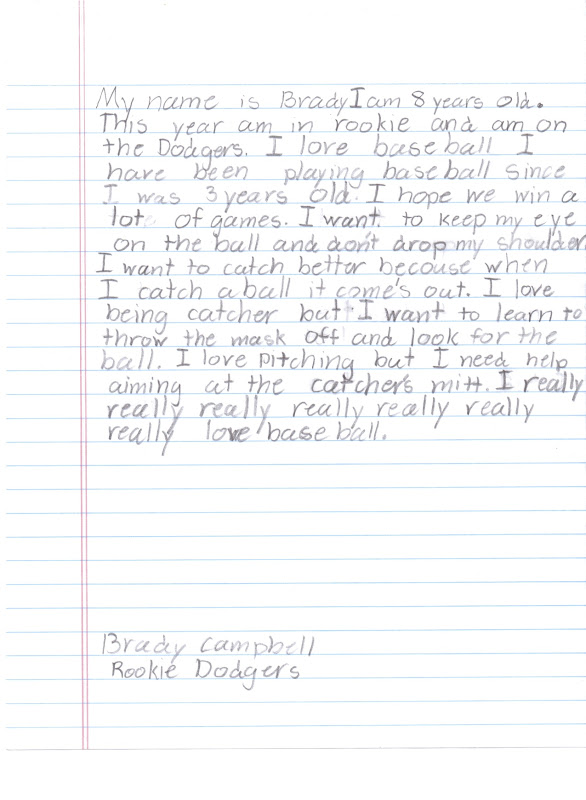 My name is Brady I am 8 years old.
This year am in rookie and am on
the Dodgers. I love baseball I
have been playing baseball since
I was 3 years old. I hope we win a
lot of games. I want to keep my eye
on the ball and don't drop my shoulder
I want to catch better becouse when
I catch a ball it come's out. I love
being catcher but I want to learn to
throw the mask off and look for the
ball. I love pitching but I need help
aiming at the catcher's mitt. I really
really really really really really
really love baseball.
Brady Campbell
Rookie Dodgers